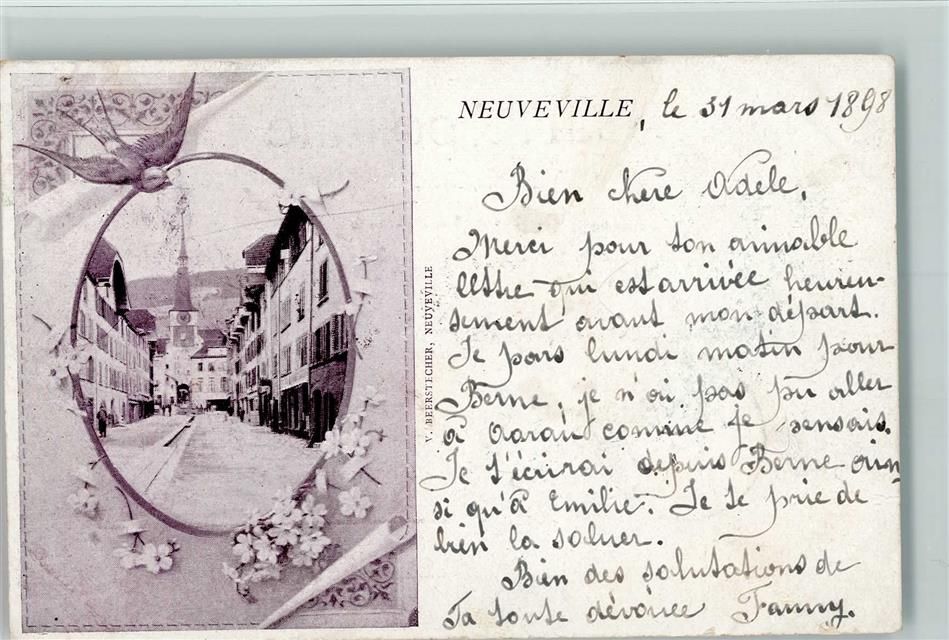 NEUVEVILLE, le 31 mars 1898
Bien chère Adèle,
Merci pour ton aimable
lettre qui est arrivée heureu-
sement avant mon départ.
Je pars lundi matin pour
Berne, je n'ai pas pu aller
à Aarau comme je pensais.
Je t'écrirai depuis Berne ain
si qu'à Emilie. Je te prie de
bien la saluer.
Bien des salutations de
Ta toute dévouée Fanny.
V. BEERSTECHER, NEUVEVILLE